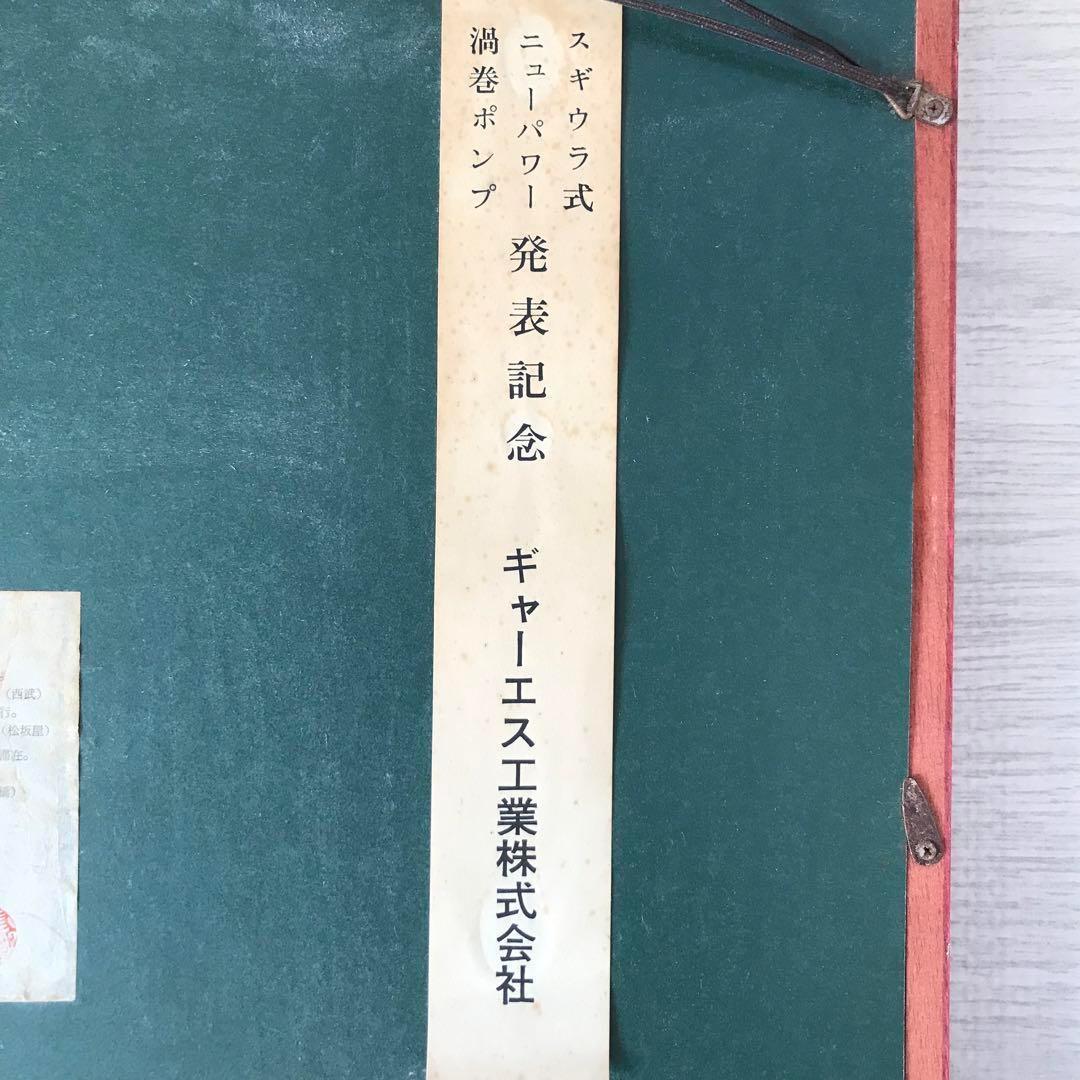 スギウラ式
ニューパワー
渦巻ポンプ
発表記念
ギャーエス工業株式会社
(西武)
行。
(松坂屋)
滞在。